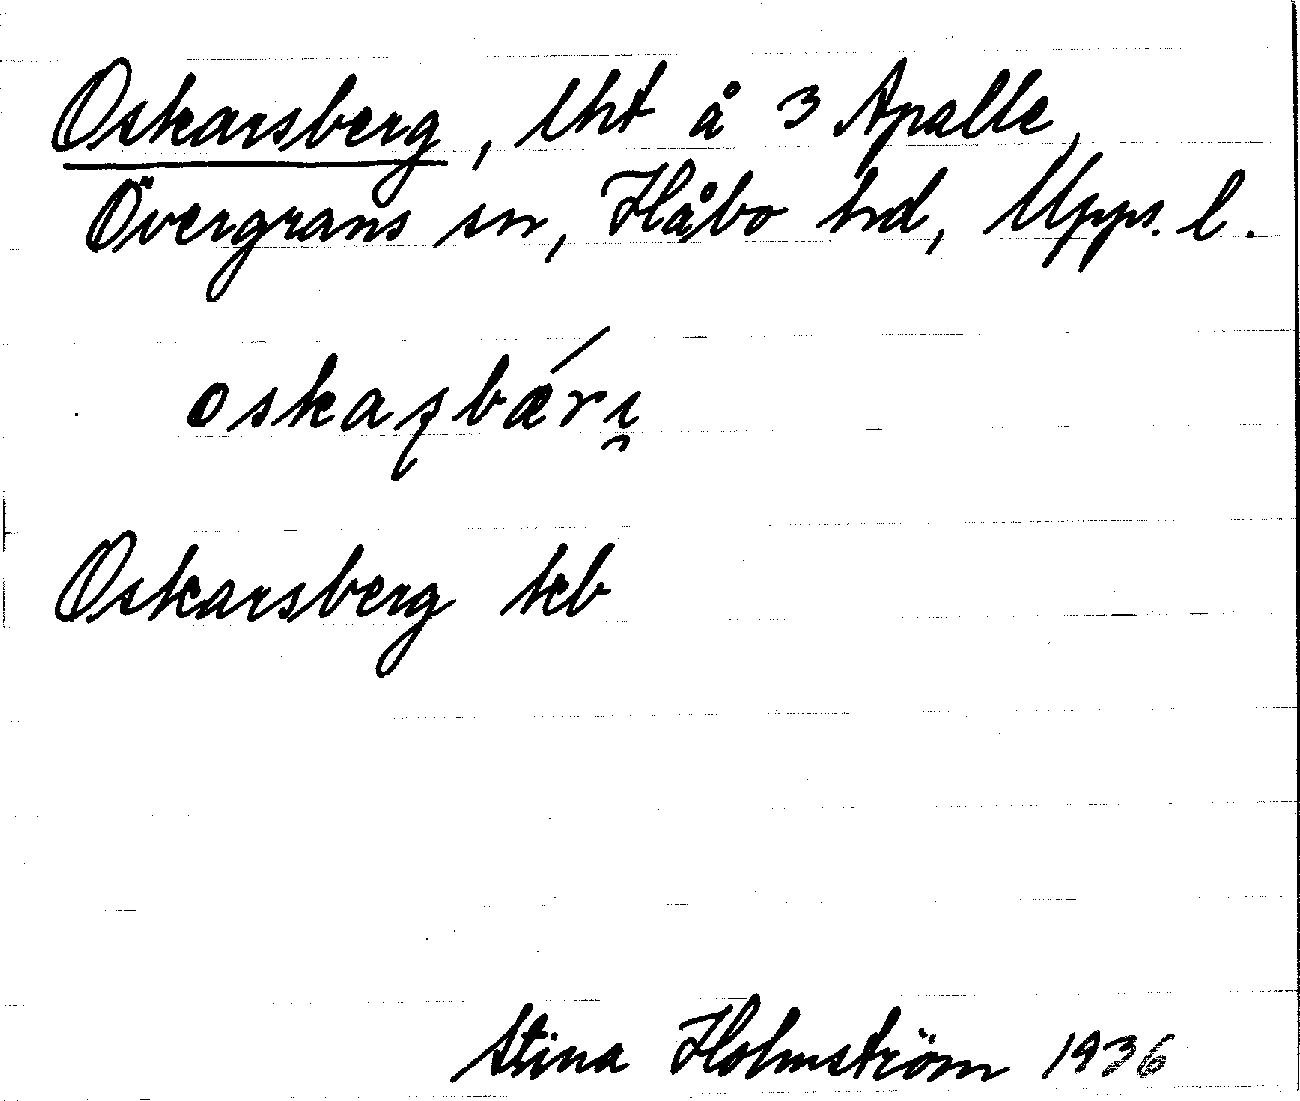 Oskarsberg, lht å 3 Apalle,
Övergrans sn, Håbo hd, Upps. l.
oskaʂbǽrı̯
Oskarsberg keb
Stina Holmström 1936